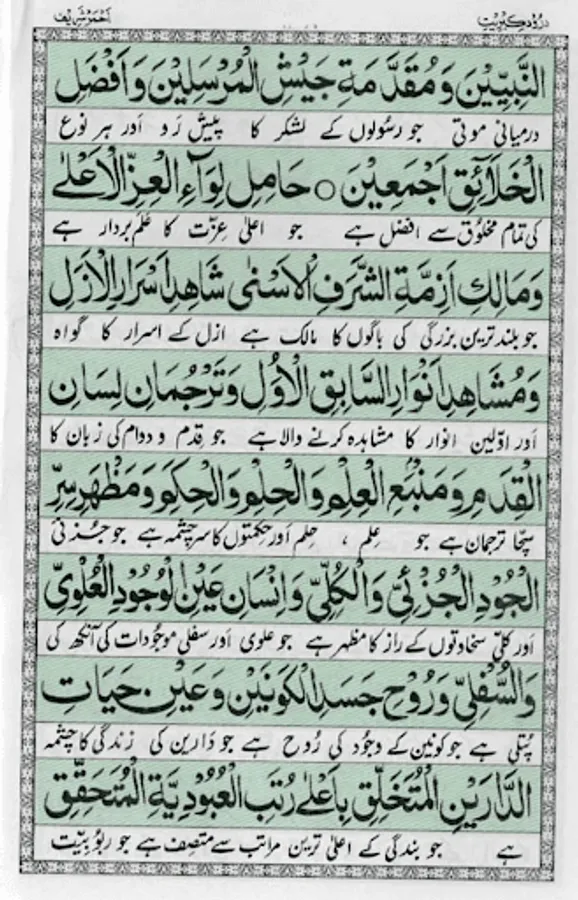 درود کبریت احمر شریف
النَّبِيِّينَ وَمُقَدَّمَةِ جَيْشِ الْمُرْسَلِينَ وَاَفْضَلِ
درمیانی موتی جو رسولوں کے لشکر کا پیش رَو اور ہر نوع
الْخَلَآئِقِ اَجْمَعِيْنَ ○ حَامِلِ لِوَآءِ الْعِزِّ الْاَعْلٰے
کی تمام مخلوق سے افضل ہے جو اعلیٰ عِزّت کا عَلم بردار ہے
وَمَالِكِ اَزِمَّةِ الشَّرَفِ الْاَسْنٰى شَاهِدِ اَسْرَارِ الْاَزَلِ
جو بلند ترین بزرگی کی باگوں کا مالک ہے ازل کے اسرار کا گواہ
وَمُشَاهِدِ اَنْوَارِ السَّابِقِ الْاَوَّلِ وَتَرْجُمَانِ لِسَانِ
اور اوّلین انوار کا مشاہدہ کرنے والا ہے جو قِدم و دوام کی زبان کا
الْقِدَمِ وَمَنْبَعِ الْعِلْمِ وَالْحِلْمِ وَالْحِكَمِ وَمَظْهَرِ سِرِّ
سچا ترجمان ہے جو عِلم ، حِلم اور حکمتوں کا سرچشمہ ہے جو جُزئی
الْجُوْدِ الْجُزْئِيِّ وَالْكُلِّيِّ وَاِنْسَانِ عَيْنِ الْوُجُوْدِ الْعُلْوِيِّ
اور کلی سخاوتوں کے راز کا مظہر ہے جو علوی اور سفلی موجودات کی آنکھ کی
وَالسُّفْلِيِّ وَرُوْحِ جَسَدِ الْكَوْنَيْنِ وَعَيْنِ حَيَاتِ
پُتلی ہے جو کونین کے وجود کی رُوح ہے جو دَارین کی زندگی کا چشمہ
الدَّارَيْنِ الْمُتَخَلِّقِ بِاَعْلٰے رُتَبِ الْعُبُوْدِيَّةِ الْمُتَحَقِّقِ
ہے جو بندگی کے اعلیٰ ترین مراتب سے متصف ہے جو ربوبیت